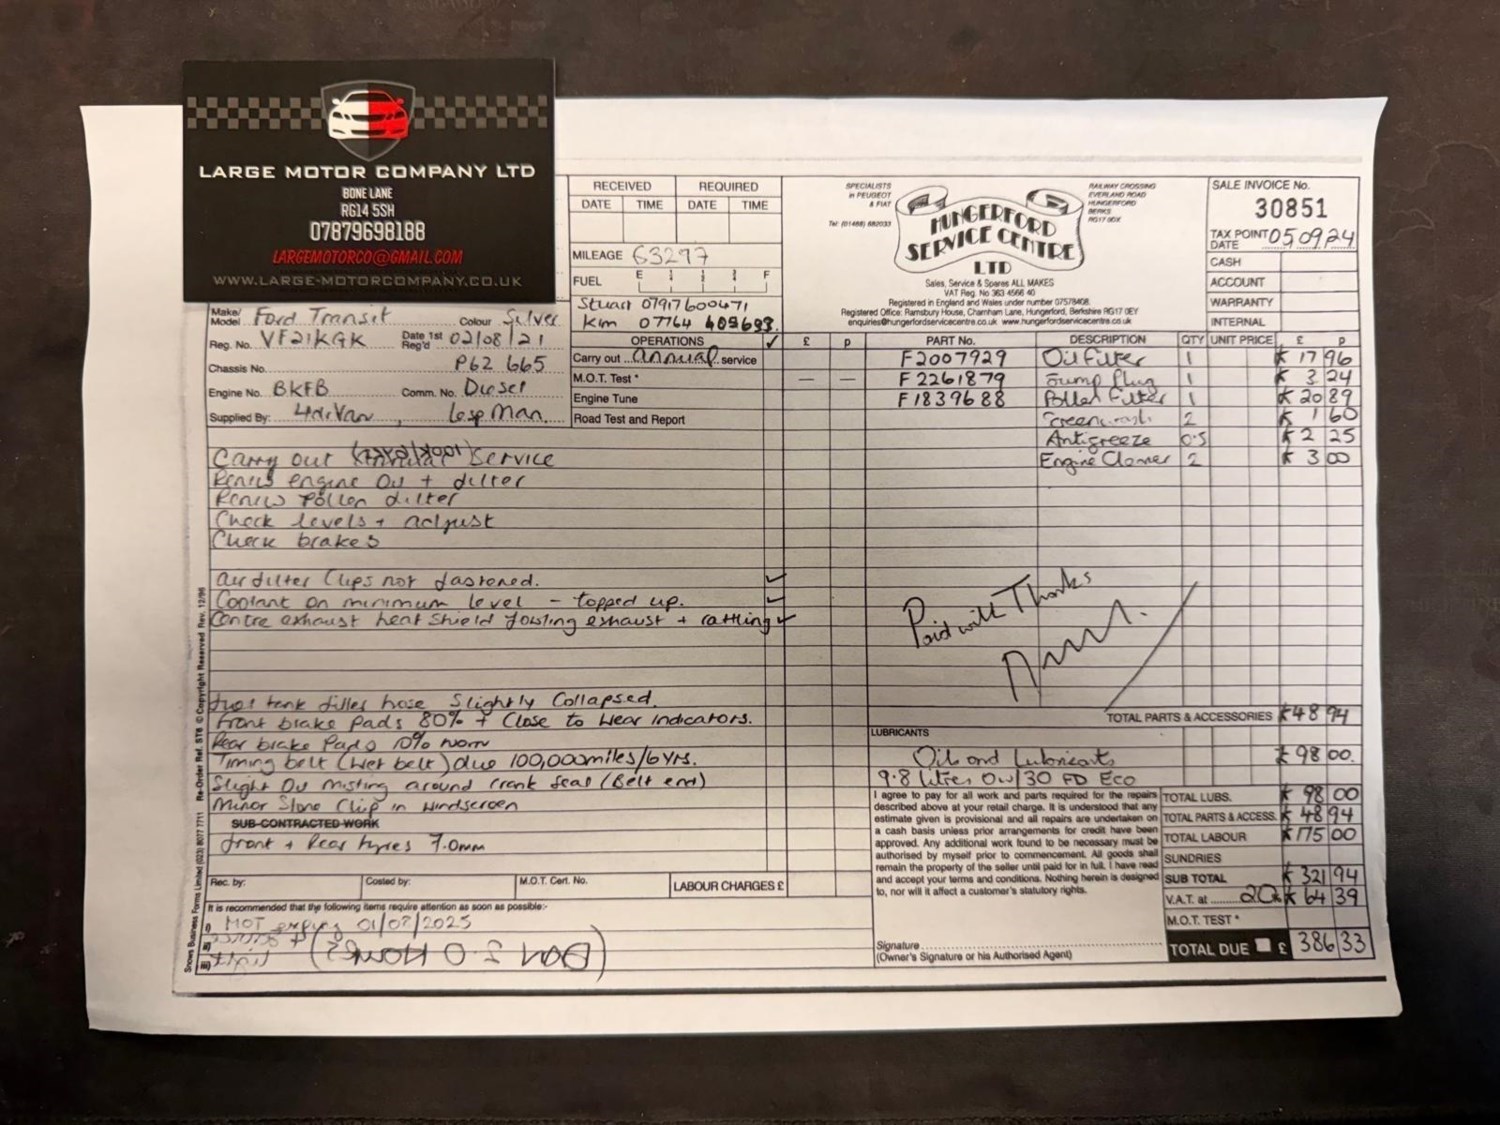 LARGE MOTOR COMPANY LTD
BONE LANE
RG14 5SH
07879698188
LARGEMOTORCO@GMAIL.COM
WWW.LARGE-MOTORCOMPANY.CO.UK
RECEIVED REQUIRED
DATE TIME DATE TIME
MILEAGE 63297
FUEL E F
Stuart 07917600471
Kim 07764 409693
SPECIALISTS
in PEUGEOT
& FIAT
Tel: (01488) 682033
HUNGERFORD
SERVICE CENTRE
LTD
RAILWAY CROSSING
EVERLAND ROAD
HUNGERFORD
BERKS
RG17 0DX
Sales, Service & Spares ALL MAKES
VAT Reg. No 363 4566 40
Registered in England and Wales under number 07578408.
Registered Office: Ramsbury House, Charnham Lane, Hungerford, Berkshire RG17 0EY
enquiries@hungerfordservicecentre.co.uk www.hungerfordservicecentre.co.uk
SALE INVOICE No.
30851
TAX POINT DATE 050924
CASH
ACCOUNT
WARRANTY
INTERNAL
Make/Model Ford Transit Colour Silver
Reg. No. VF21KGK Date 1st Reg'd 02/08/21
Chassis No. P62 665
Engine No. BKFB Comm. No. Diesel
Supplied By: 4drVan
OPERATIONS ✓ £ p
Carry out annual service
M.O.T. Test * — —
Engine Tune
Road Test and Report
PART No. DESCRIPTION QTY UNIT PRICE £ p
F2007929 Oil filter 1 17 96
F2261879 Sump Plug 1 3 24
F1839688 Pollen filter 1 20 89
Screenwash 2 1 60
Antifreeze 0.5 2 25
Engine Cleaner 2 3 00
Carry out Service
Renew engine Oil + filter
Renew Pollen filter
Check levels + adjust
Check brakes
Air filter Clips not fastened. ✓
Coolant on minimum level - topped up. ✓
Centre exhaust heat shield fouling exhaust + rattling ✓
Fuel tank filler hose Slightly Collapsed.
Front brake Pads 80% + Close to Wear indicators.
Rear brake Pads 10% Worn
Timing belt (Wet belt) due 100,000miles/6yrs.
Slight Oil misting around crank Seal (Belt end)
Minor Stone Chip in Windscreen
SUB-CONTRACTED WORK
front + Rear tyres 7.0mm
Paid with Thanks
TOTAL PARTS & ACCESSORIES 48 94
LUBRICANTS
Oil and Lubricants 98 00
9.8 litres 0W/30 FD Eco
I agree to pay for all work and parts required for the repairs
described above at your retail charge. It is understood that any
estimate given is provisional and all repairs are undertaken on
a cash basis unless prior arrangements for credit have been
approved. Any additional work found to be necessary must be
authorised by myself prior to commencement. All goods shall
remain the property of the seller until paid for in full. I have read
and accept your terms and conditions. Nothing herein is designed
to, nor will it affect a customer's statutory rights.
Signature
(Owner's Signature or his Authorised Agent)
TOTAL LUBS. 98 00
TOTAL PARTS & ACCESS. 48 94
TOTAL LABOUR 175 00
SUNDRIES
SUB TOTAL 321 94
V.A.T. at 20% 64 39
M.O.T. TEST *
TOTAL DUE £ 386 33
Rec. by: Costed by: M.O.T. Cert. No. LABOUR CHARGES £
It is recommended that the following items require attention as soon as possible:-
i) MOT expires 01/07/2025
ii)
iii)
Snows Business Forms Limited (023) 8077 7711 Re-Order Ref. ST8 © Copyright Reserved Rev. 12/96